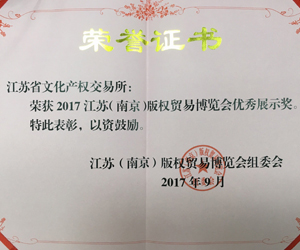 荣誉证书
江苏省文化产权交易所：
荣获 2017 江苏（南京）版权贸易博览会优秀展示奖。
特此表彰，以资鼓励。
江苏（南京）版权贸易博览会组委会
2017 年 9 月